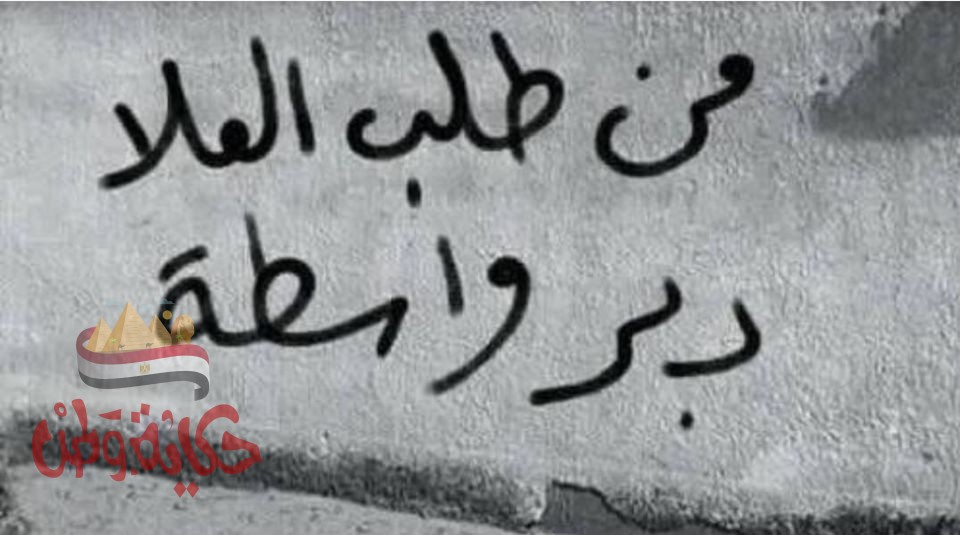 من طلب العلا
دبر واسطة
حكاية وطن